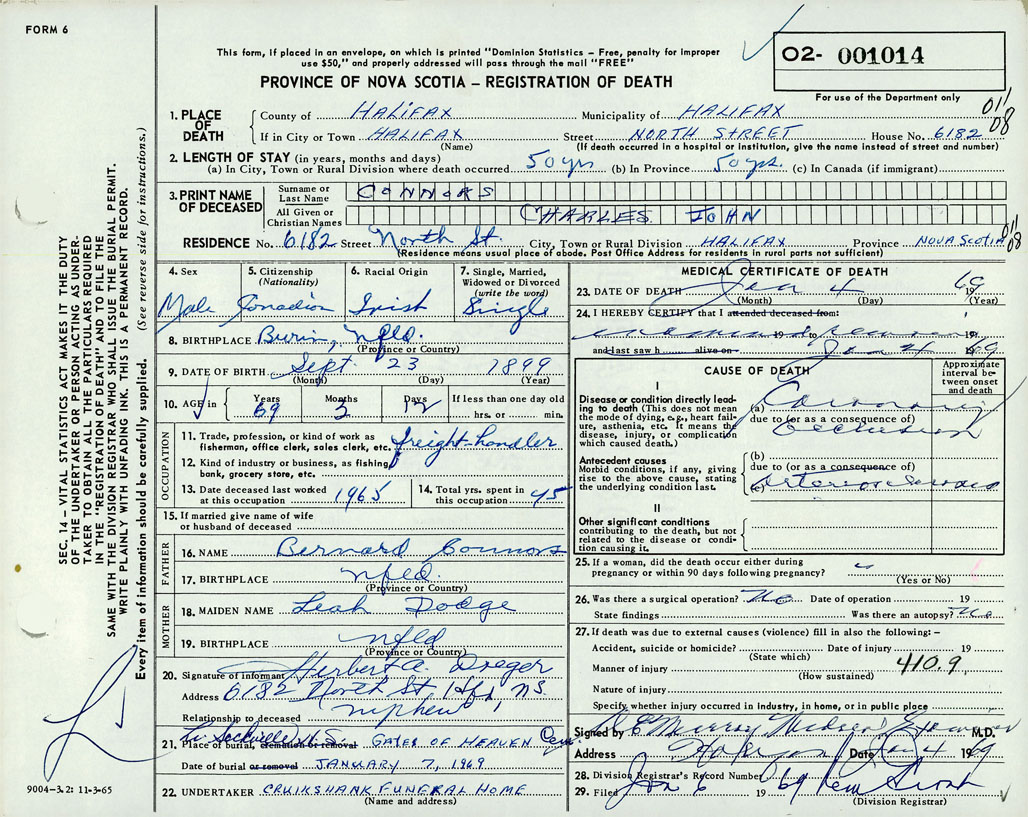 FORM 6
This form, if placed in an envelope, on which is printed "Dominion Statistics – Free, penalty for improper
use $50," and properly addressed will pass through the mail "FREE"
PROVINCE OF NOVA SCOTIA – REGISTRATION OF DEATH
02- 001014
For use of the Department only
011
08
1. PLACE OF DEATH
County of HALIFAX Municipality of HALIFAX
If in City or Town HALIFAX Street NORTH STREET House No. 6182
(Name) (If death occurred in a hospital or institution, give the name instead of street and number)
2. LENGTH OF STAY (in years, months and days)
(a) In City, Town or Rural Division where death occurred 50 yrs (b) In Province 50 yrs. (c) In Canada (if immigrant)
3. PRINT NAME OF DECEASED
Surname or Last Name CONNORS
All Given or Christian Names CHARLES JOHN
RESIDENCE No. 6182 Street North St. City, Town or Rural Division HALIFAX Province NOVA SCOTIA
011
08
(Residence means usual place of abode. Post Office Address for residents in rural parts not sufficient)
4. Sex Male
5. Citizenship (Nationality) Canadian
6. Racial Origin Irish
7. Single, Married, Widowed or Divorced (write the word) Single
8. BIRTHPLACE Burin, Nfld.
(Province or Country)
9. DATE OF BIRTH Sept. 23 1899
(Month) (Day) (Year)
10. AGE in Years 69 Months 3 Days 12 If less than one day old
hrs. or min.
OCCUPATION
11. Trade, profession, or kind of work as fisherman, office clerk, sales clerk, etc. freight-handler
12. Kind of industry or business, as fishing, bank, grocery store, etc.
13. Date deceased last worked at this occupation 1965
14. Total yrs. spent in this occupation 45
15. If married give name of wife or husband of deceased
FATHER
16. NAME Bernard Connors
17. BIRTHPLACE Nfld.
(Province or Country)
MOTHER
18. MAIDEN NAME Leah Dodge
19. BIRTHPLACE Nfld
(Province or Country)
20. Signature of informant Herbert A.
Address 6182 North St, Hfx, N.S.
Relationship to deceased nephew
21. Place of burial, cremation or removal Lr. Sackville N.S. GATES OF HEAVEN Cem.
Date of burial or removal JANUARY 7, 1969
22. UNDERTAKER CRUIKSHANK FUNERAL HOME
(Name and address)
MEDICAL CERTIFICATE OF DEATH
23. DATE OF DEATH Jan 4 1969
(Month) (Day) (Year)
24. I HEREBY CERTIFY that I attended deceased from:
examined remains 19 to 19
and last saw h alive on Jan 4 1969
CAUSE OF DEATH
Approximate interval between onset and death
I
Disease or condition directly leading to death (This does not mean the mode of dying, e.g., heart failure, asthenia, etc. It means the disease, injury, or complication which caused death.)
(a) Coronary
due to (or as a consequence of)
Occlusion
Antecedent causes
Morbid conditions, if any, giving rise to the above cause, stating the underlying condition last.
(b)
due to (or as a consequence of)
(c) Arteriosclerosis
II
Other significant conditions
contributing to the death, but not related to the disease or condition causing it.
25. If a woman, did the death occur either during pregnancy or within 90 days following pregnancy?
(Yes or No)
26. Was there a surgical operation? No Date of operation 19
State findings Was there an autopsy? No
27. If death was due to external causes (violence) fill in also the following: –
Accident, suicide or homicide? Date of injury 19
(State which)
Manner of injury 410.9
(How sustained)
Nature of injury
Specify whether injury occurred in industry, in home, or in public place
Signed by Murray Medical Examiner M.D.
Address Halifax Date Jan 4 1969
28. Division Registrar's Record Number
29. Filed Jan 6 19 69
(Division Registrar)
SEC. 14 – VITAL STATISTICS ACT MAKES IT THE DUTY
OF THE UNDERTAKER OR PERSON ACTING AS UNDER-
TAKER TO OBTAIN ALL THE PARTICULARS REQUIRED
IN THE "REGISTRATION OF DEATH" AND TO FILE THE
SAME WITH THE DIVISION REGISTRAR WHO SHALL ISSUE THE BURIAL PERMIT.
WRITE PLAINLY WITH UNFADING INK. THIS IS A PERMANENT RECORD.
Every item of information should be carefully supplied. (See reverse side for instructions.)
9004-3.2: 11-3-65